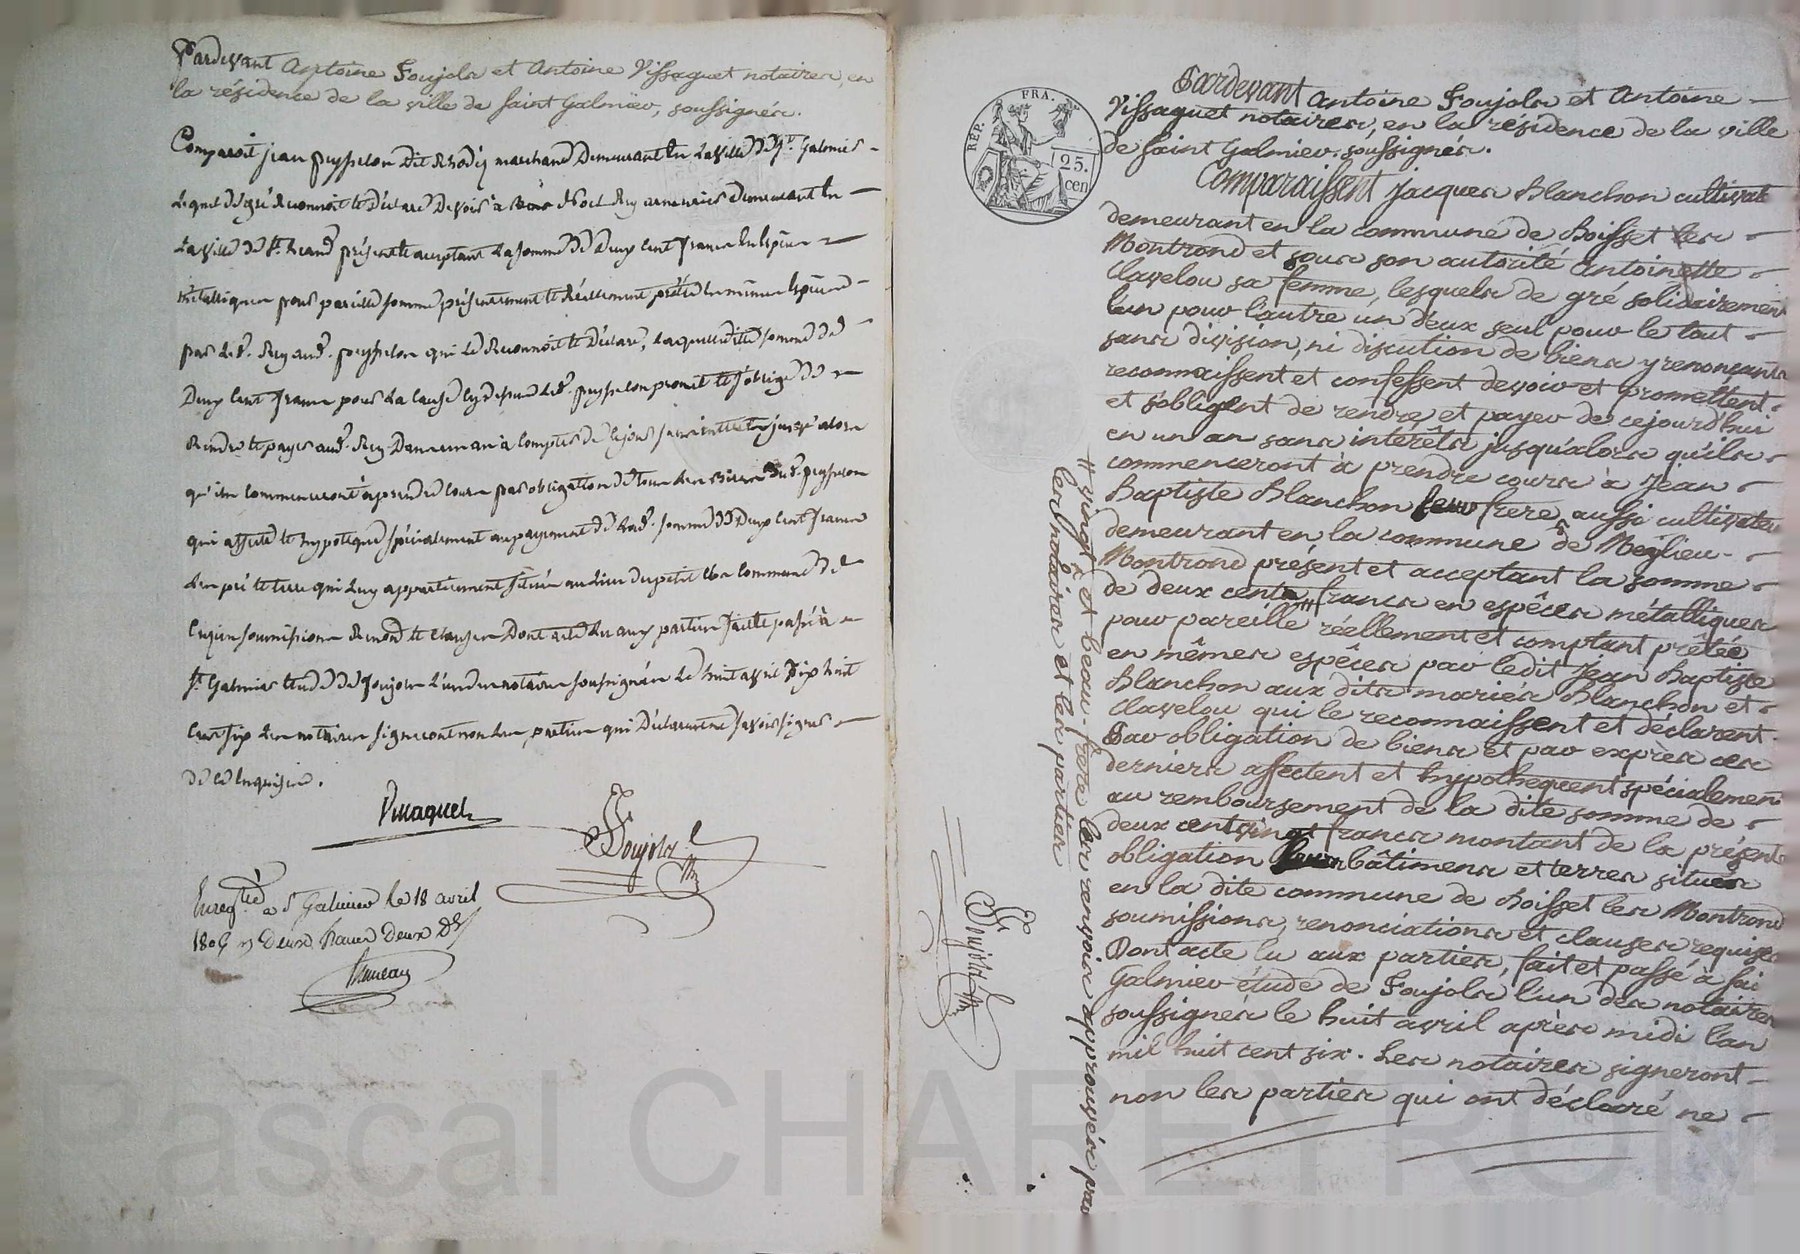 Pardevant Antoine Foujols et Antoine Vissaguet notaires, en
la résidence de la ville de saint Galmier, soussignés.
Comparoit jean peysselon dit Rhodis marchand Demeurant En La ville De St. Galmier
Lequel De gré Reconnoit et Déclare Devoir à Noel Rey armurier Demeurant En
La ville de St. heand présent et acceptant La somme De Deux cent francs En Espèces
métalliques pour pareille somme présentement et Réellement prêtée En mêmes Espèces
par Led. Rey aud. peysselon qui Le Reconnoit et Déclare, Laquelle ditte somme De
Deux Cent francs pour La Cause Cy dessus Led. peysselon promet et s'oblige De
Rendre et payer aud. Rey Dans un an à Compter De Ce jour sans intérêts jusqu'alors
qu'ils Commenceront à prendre Cours par obligation De tous Les Biens Dud. peysselon
qui affecte et hypotèque spécialement au payement De Lad. somme De Deux Cent francs
Les pré et terre qui Luy appartiennent situés au Lieu Du Commune De
soumissions Renond. et Clauses Dont acte Lu aux parties fait et passé à
St. Galmier Etude De foujols L'un des notaires soussignés Le huit avril Dix huit
Cent six Les notaires signeront non Les parties qui Déclarent ne savoir signer
De Ce Enquises.
Vissaguet
Foujols
Enregtré a St Galmier le 18 avril
1806 Deux francs Deux
RÉP. FRA.
25.
cen
Pardevant Antoine Foujols et Antoine
Vissaguet notaires, en la résidence de la ville
de saint Galmier, soussignés.
Comparaissent jacques Blanchon cultivat
demeurant en la commune de Boisset les
Montrond et sous son autorité Antoinette
Clavelou sa femme, lesquels de gré solidairement
l'un pour l'autre un d'eux seul pour le tout
sans division, ni discution de biens y renonçants
reconnaissent et confessent devoir et promettent
et s'obligent de rendre, et payer de cejourd'hui
en un an sans intérêts jusqu'alors qu'ils
commenceront à prendre cours à Jean
Baptiste Blanchon leur frere, aussi cultivateur
demeurant en la commune de Meylieu
Montrond présent et acceptant la somme
de deux cents " francs en espèces métalliques
pour pareille réellement et comptant prêtée
en mêmes espèces par ledit Jean Baptiste
Blanchon aux dits mariés Blanchon et
Clavelou qui le reconnaissent et déclarent.
Par obligation de biens et par exprès ces
derniers affectent et hypothequent spécialement
au remboursement de la dite somme de
deux cent vingt francs montant de la présente
obligation bâtimens et terres situés
en la dite commune de Boisset les Montrond
soumissions, renonciations et clauses requises
Dont acte lu aux parties, fait et passé à sai
Galmier étude de Foujols l'un des notaires
soussignés le huit avril après midi l'an
mil huit cent six. Les notaires signeront
non les parties qui ont déclaré ne
" vingt et beau-frere les renvois approuvés par
les notaires et les parties
Foujols
Pascal CHAREYRON